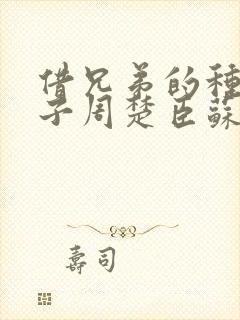 借兄弟的種
子周楚臣蘇
壽司